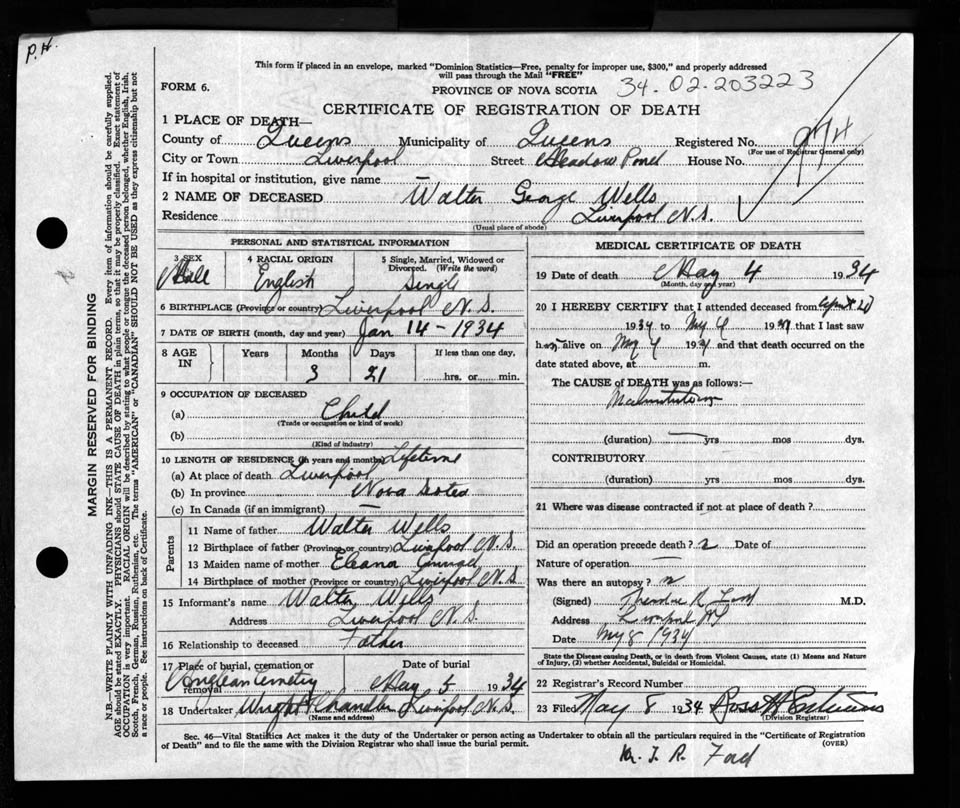 P.H.
This form if placed in an envelope, marked "Dominion Statistics—Free, penalty for improper use, $300," and properly addressed
will pass through the Mail "FREE"
FORM 6.
PROVINCE OF NOVA SCOTIA
34.02.203223
CERTIFICATE OF REGISTRATION OF DEATH
1 PLACE OF DEATH—
County of Queens Municipality of Queens Registered No.
(For use of Registrar General only)
City or Town Liverpool Street Meadow Pond House No.
If in hospital or institution, give name —
2 NAME OF DECEASED Walter George Wells
Residence Liverpool N.S.
(Usual place of abode)
PERSONAL AND STATISTICAL INFORMATION
3 SEX
Male
4 RACIAL ORIGIN
English
5 Single, Married, Widowed or
Divorced. (Write the word)
Single
6 BIRTHPLACE (Province or country) Liverpool N.S.
7 DATE OF BIRTH (month, day and year) Jan 14-1934
8 AGE
IN
Years Months Days If less than one day,
3 21 hrs. or min.
9 OCCUPATION OF DECEASED
(a) Child
(Trade or occupation or kind of work)
(b)
(Kind of industry)
10 LENGTH OF RESIDENCE (In years and months) Lifetime
(a) At place of death Liverpool
(b) In province Nova Scotia
(c) In Canada (if an immigrant) —
Parents
11 Name of father Walter Wells
12 Birthplace of father (Province or country) Liverpool N.S.
13 Maiden name of mother Eleana
14 Birthplace of mother (Province or country) Liverpool N.S.
15 Informant's name Walter Wells
Address Liverpool N.S.
16 Relationship to deceased Father
17 Place of burial, cremation or
removal
Date of burial
Anglican Cemetery May 5 1934
18 Undertaker Wright & Chandler Liverpool N.S.
(Name and address)
MEDICAL CERTIFICATE OF DEATH
19 Date of death May 4 1934
(Month, day and year)
20 I HEREBY CERTIFY that I attended deceased from April 20
1934 to May 4 1934 that I last saw
h alive on May 4 1934 and that death occurred on the
date stated above, at m.
The CAUSE of DEATH was as follows:—
Malnutrition
(duration) — yrs mos dys.
CONTRIBUTORY
(duration) yrs. mos. dys.
21 Where was disease contracted if not at place of death?
Did an operation precede death? Date of
Nature of operation —
Was there an autopsy?
(Signed) Theodore R Ford M.D.
Address Liverpool NS
Date May 8 1934
State the Disease causing Death, or in death from Violent Causes, state (1) Means and Nature
of Injury, (2) whether Accidental, Suicidal or Homicidal.
22 Registrar's Record Number
23 Filed May 8 1934 Ross
(Division Registrar)
Sec. 46—Vital Statistics Act makes it the duty of the Undertaker or person acting as Undertaker to obtain all the particulars required in the "Certificate of Registration
of Death" and to file the same with the Division Registrar who shall issue the burial permit.
(OVER)
Dr. T. R. Ford
MARGIN RESERVED FOR BINDING
N.B.—WRITE PLAINLY WITH UNFADING INK—THIS IS A PERMANENT RECORD. Every item of information should be carefully supplied.
AGE should be stated EXACTLY. PHYSICIANS should STATE CAUSE OF DEATH in plain terms, so that it may be properly classified. Exact statement of
OCCUPATION is very important. RACIAL ORIGIN will be described by stating to what people or tongue the deceased person belonged, whether English, Irish,
Scotch, French, German, Russian, Ruthenian, etc. The terms "AMERICAN" or "CANADIAN" SHOULD NOT BE USED as they express citizenship but not
a race or people. See instructions on back of Certificate.